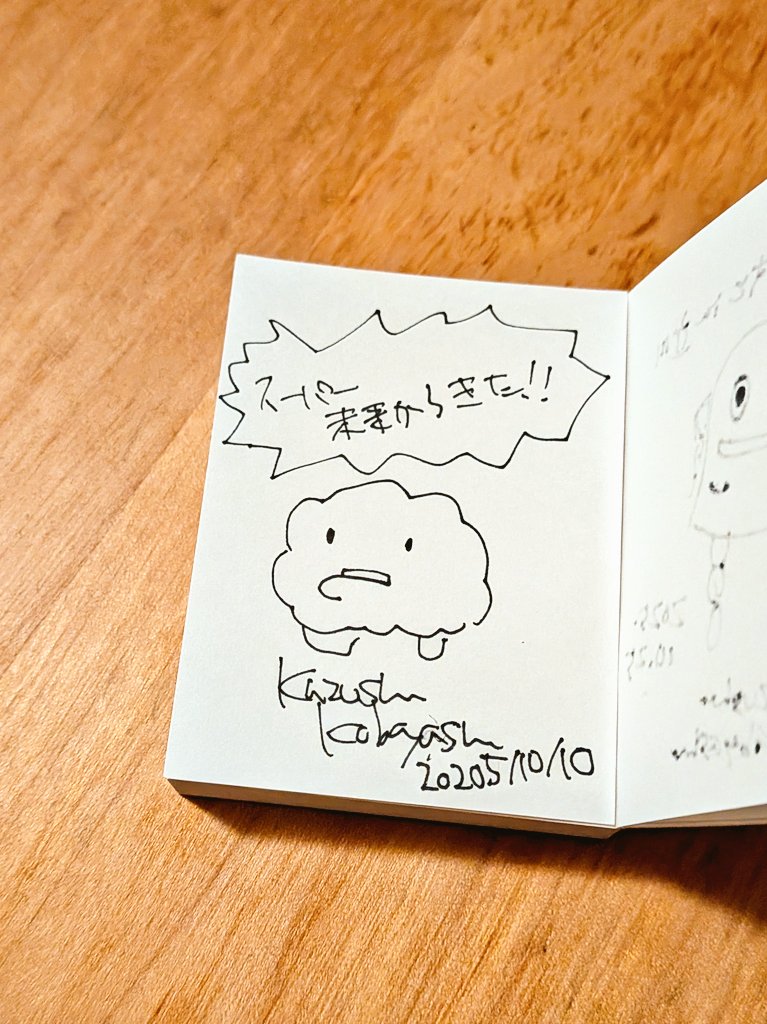 スーパー
未来からきた!!
Kazushi
Kobayashi
20205/10/10
2025.